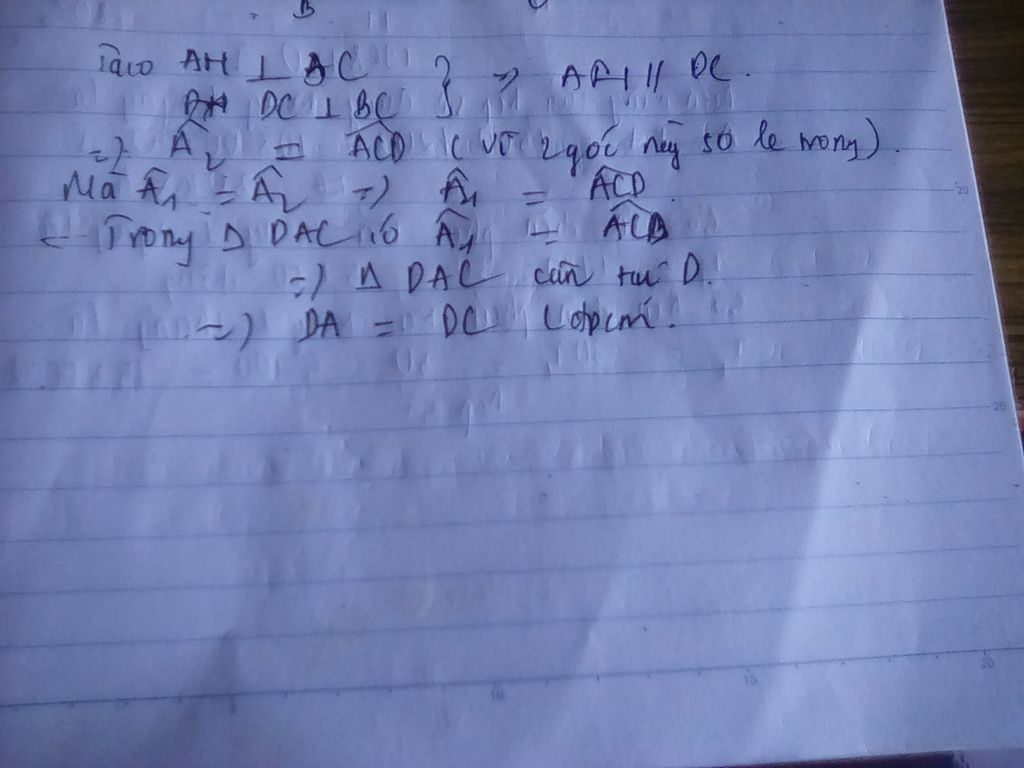 Ta có AH ⊥ BC } => AH // DC.
DC ⊥ BC
=> Â2 = ACD (vì 2 góc này so le trong).
Mà Â1 = Â2 => Â1 = ACD.
- Trong Δ DAC có Â1 = ACD
=> Δ DAC cân tại D.
=> DA = DC (đpcm).